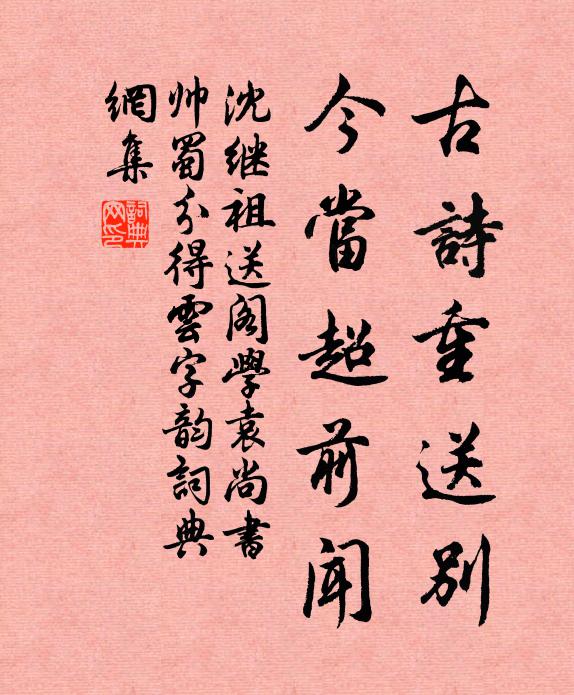 古詩重送别
今當超前聞
沈继祖送阁學袁尚書
帅蜀分得雲字韵詞典
網集
詞典
网印